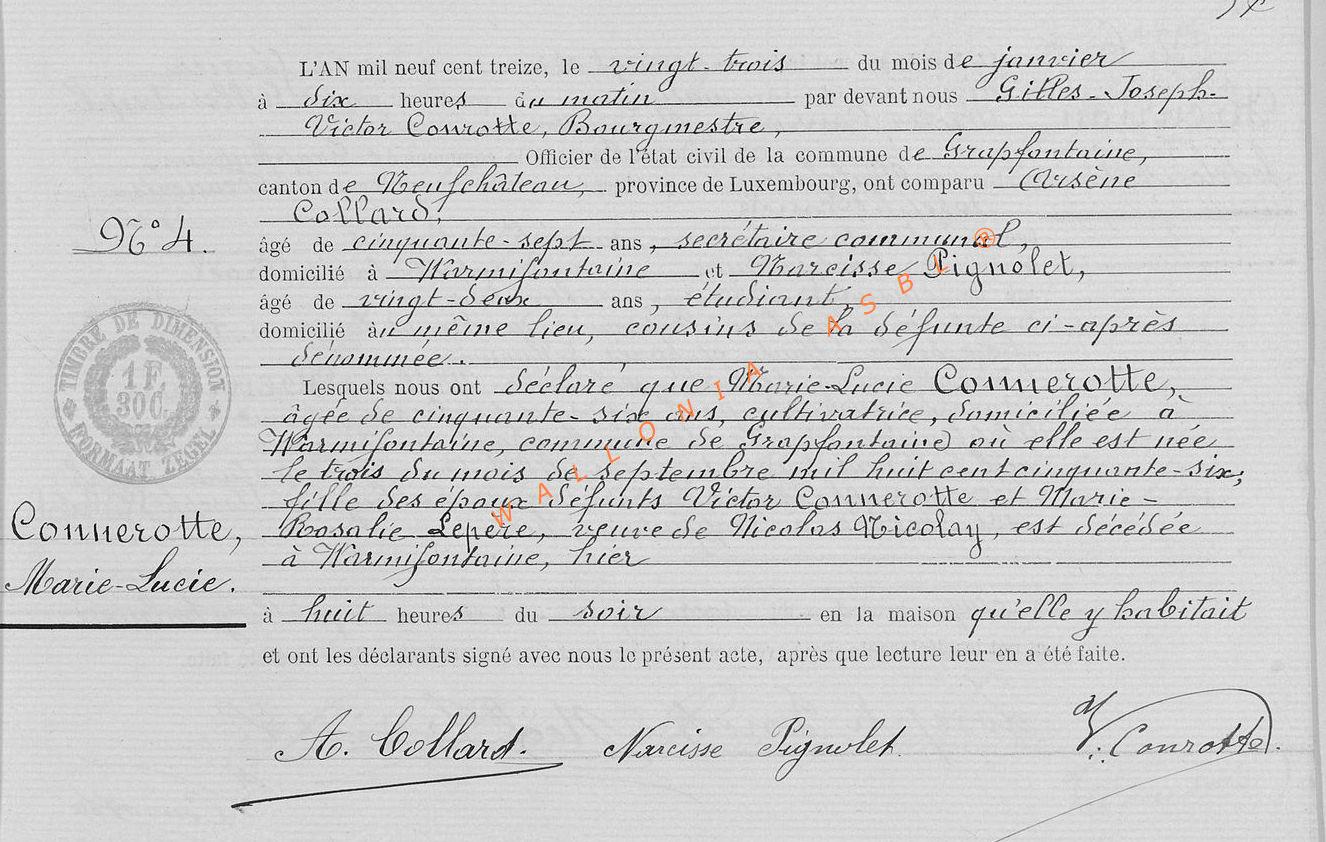 L'AN mil neuf cent treize, le vingt-trois du mois de janvier
à dix heures du matin par devant nous Gilles-Joseph-
Victor Conrotte, Bourgmestre,
Officier de l'état civil de la commune de Grapfontaine,
canton de Neufchâteau, province de Luxembourg, ont comparu Arsène
Collard,
N° 4.
âgé de cinquante-sept ans, secrétaire communal,
domicilié à Warmifontaine et Narcisse Pignolet,
âgé de vingt-deux ans, étudiant,
domicilié au même lieu, cousins de la défunte ci-après
dénommée.
TIMBRE DE DIMENSION
1 F.
30C.
FORMAAT ZEGEL
Lesquels nous ont déclaré que Marie-Lucie Connerotte,
âgée de cinquante-six ans, cultivatrice, domiciliée à
Warmifontaine, commune de Grapfontaine) où elle est née
le trois du mois de septembre mil huit cent cinquante-six;
fille des époux défunts Victor Connerotte et Marie-
Rosalie Lepère, veuve de Nicolas Nicolay, est décédée
à Warmifontaine, hier
Connerotte,
Marie-Lucie.
à huit heures du soir en la maison qu'elle y habitait
et ont les déclarants signé avec nous le présent acte, après que lecture leur en a été faite.
A. Collard. Narcisse Pignolet. V. Conrotte.
WALLONIA ASBL ®